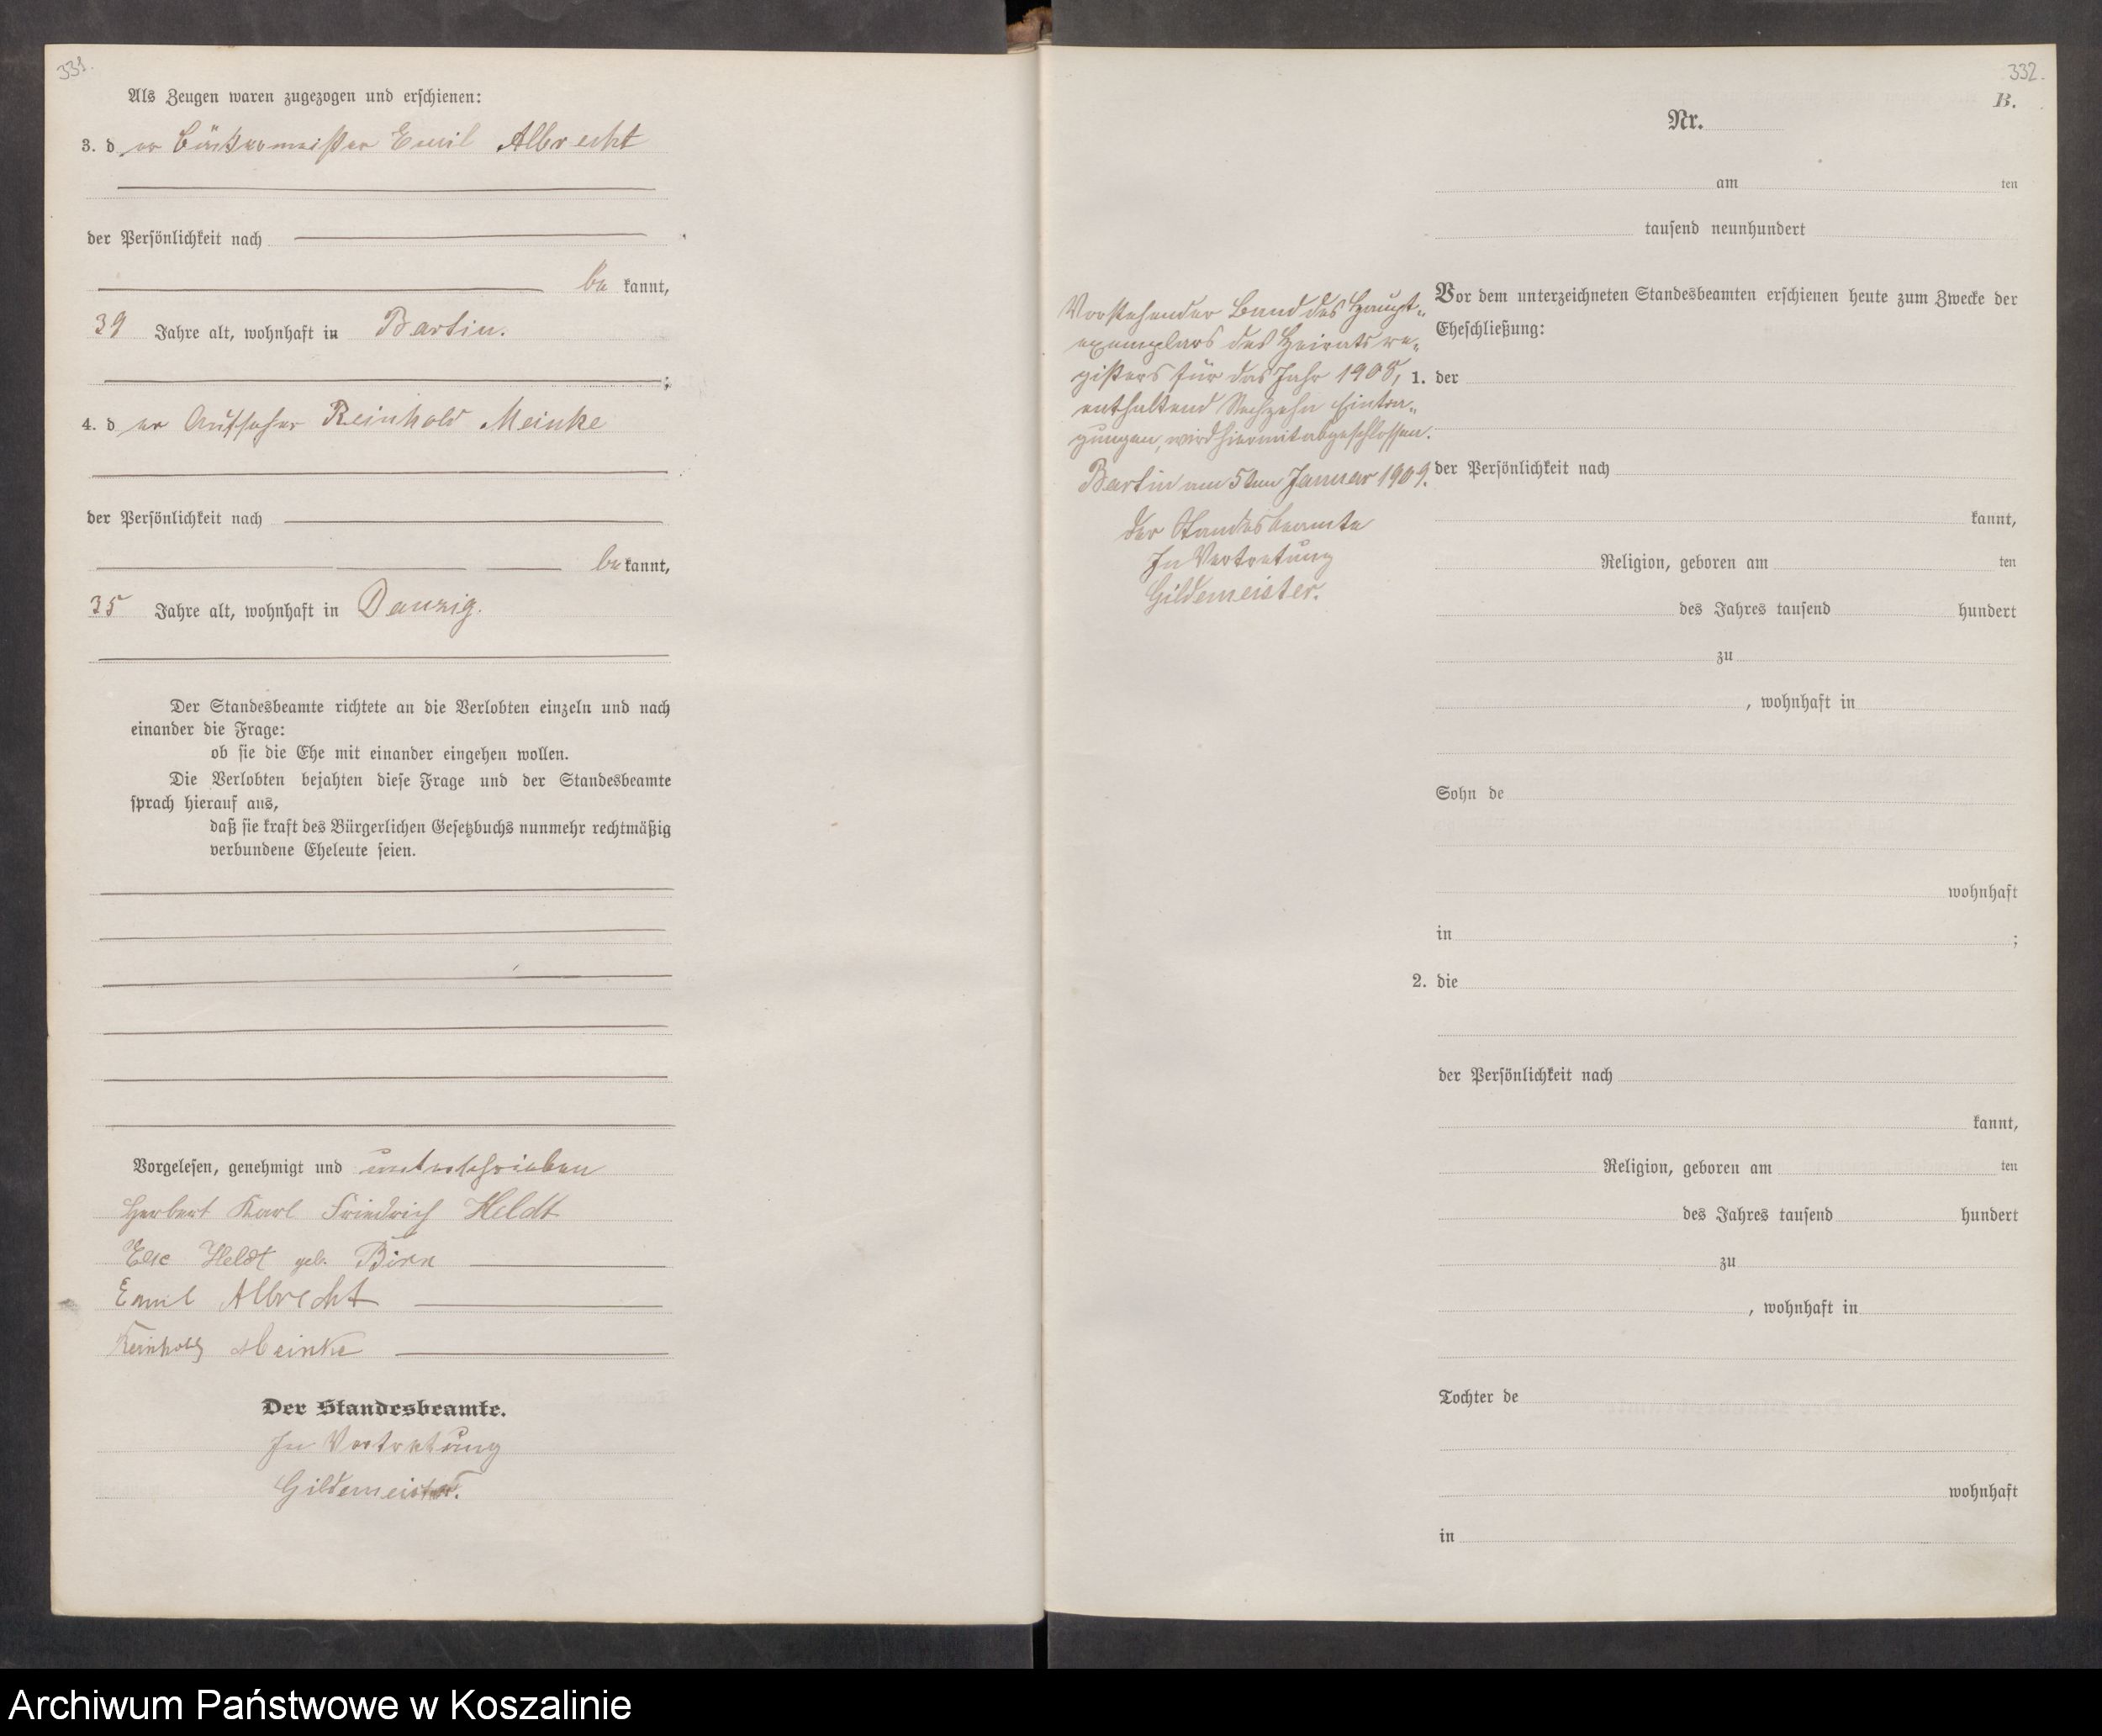 331.
Als Zeugen waren zugezogen und erschienen:
3. d er Emil Albrecht
der Persönlichkeit nach
be kannt,
39 Jahre alt, wohnhaft in Bartin.
;
4. d er Aufseher Reinhold Meinke
der Persönlichkeit nach
be kannt,
35 Jahre alt, wohnhaft in Danzig.
Der Standesbeamte richtete an die Verlobten einzeln und nach
einander die Frage:
ob sie die Ehe mit einander eingehen wollen.
Die Verlobten bejahten diese Frage und der Standesbeamte
sprach hierauf aus,
daß sie kraft des Bürgerlichen Gesetzbuchs nunmehr rechtmäßig
verbundene Eheleute seien.
Vorgelesen, genehmigt und unterschrieben
Herbert Karl Friedrich Heldt
Else Heldt geb. Birr
Emil Albrecht
Reinhold Meinke
Der Standesbeamte.
In Vertretung
Gildemeister.
332.
B.
Nr.
am ten
tausend neunhundert
Vorstehender Band des Haupt-
exemplars des Heiratsre-
gisters für das Jahr 1908,
enthaltend Eintra-
gungen, wird hiermit abgeschlossen.
Bartin am 5ten Januar 1909.
Der Standesbeamte
In Vertretung
Gildemeister.
Vor dem unterzeichneten Standesbeamten erschienen heute zum Zwecke der
Eheschließung:
1. der
der Persönlichkeit nach
kannt,
Religion, geboren am ten
des Jahres tausend hundert
zu
, wohnhaft in
Sohn de
wohnhaft
in ;
2. die
der Persönlichkeit nach
kannt,
Religion, geboren am ten
des Jahres tausend hundert
zu
, wohnhaft in
Tochter de
wohnhaft
in
Archiwum Państwowe w Koszalinie